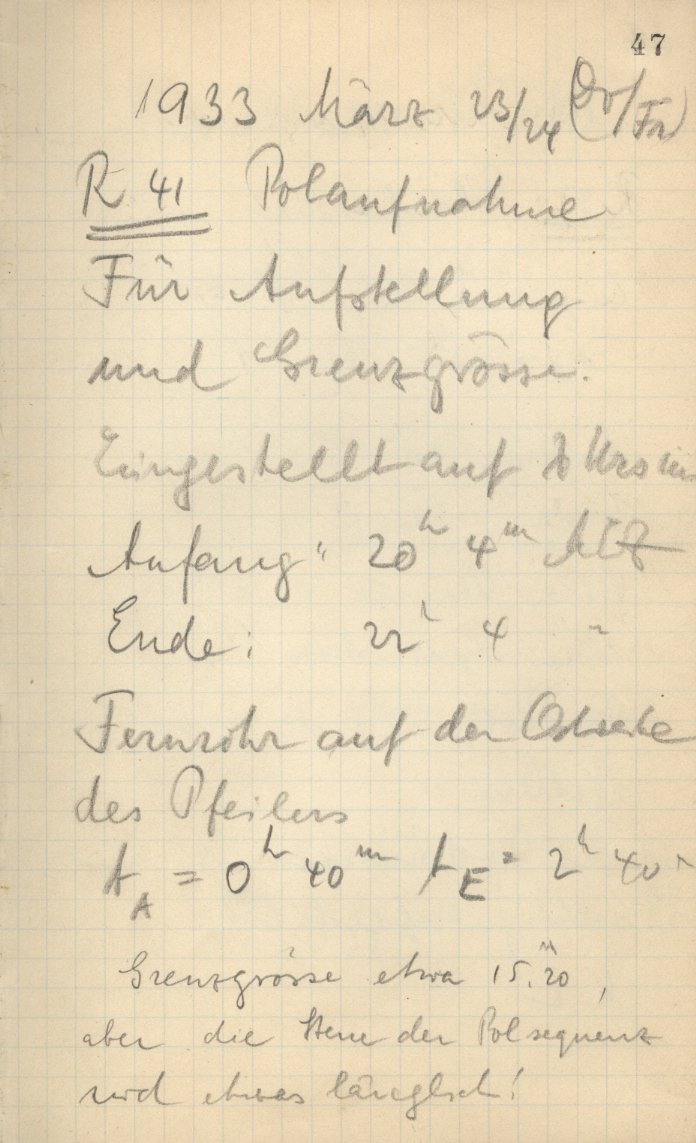 47
1933 März 23/24 (Dr/Fa)
R 41 Polaufnahme
Für Aufstellung
und Grenzgrösse.
Eingestellt auf
Anfang: 20ʰ 4ᵐ MEZ
Ende: 22ʰ 4 "
Fernrohr auf der Ostseite
des Pfeilers
t_A = 0ʰ 40ᵐ t_E = 2ʰ 40ᵐ
Grenzgrösse etwa 15.ᵐ20,
aber die Sterne der Polsequenz
sind etwas länglich!